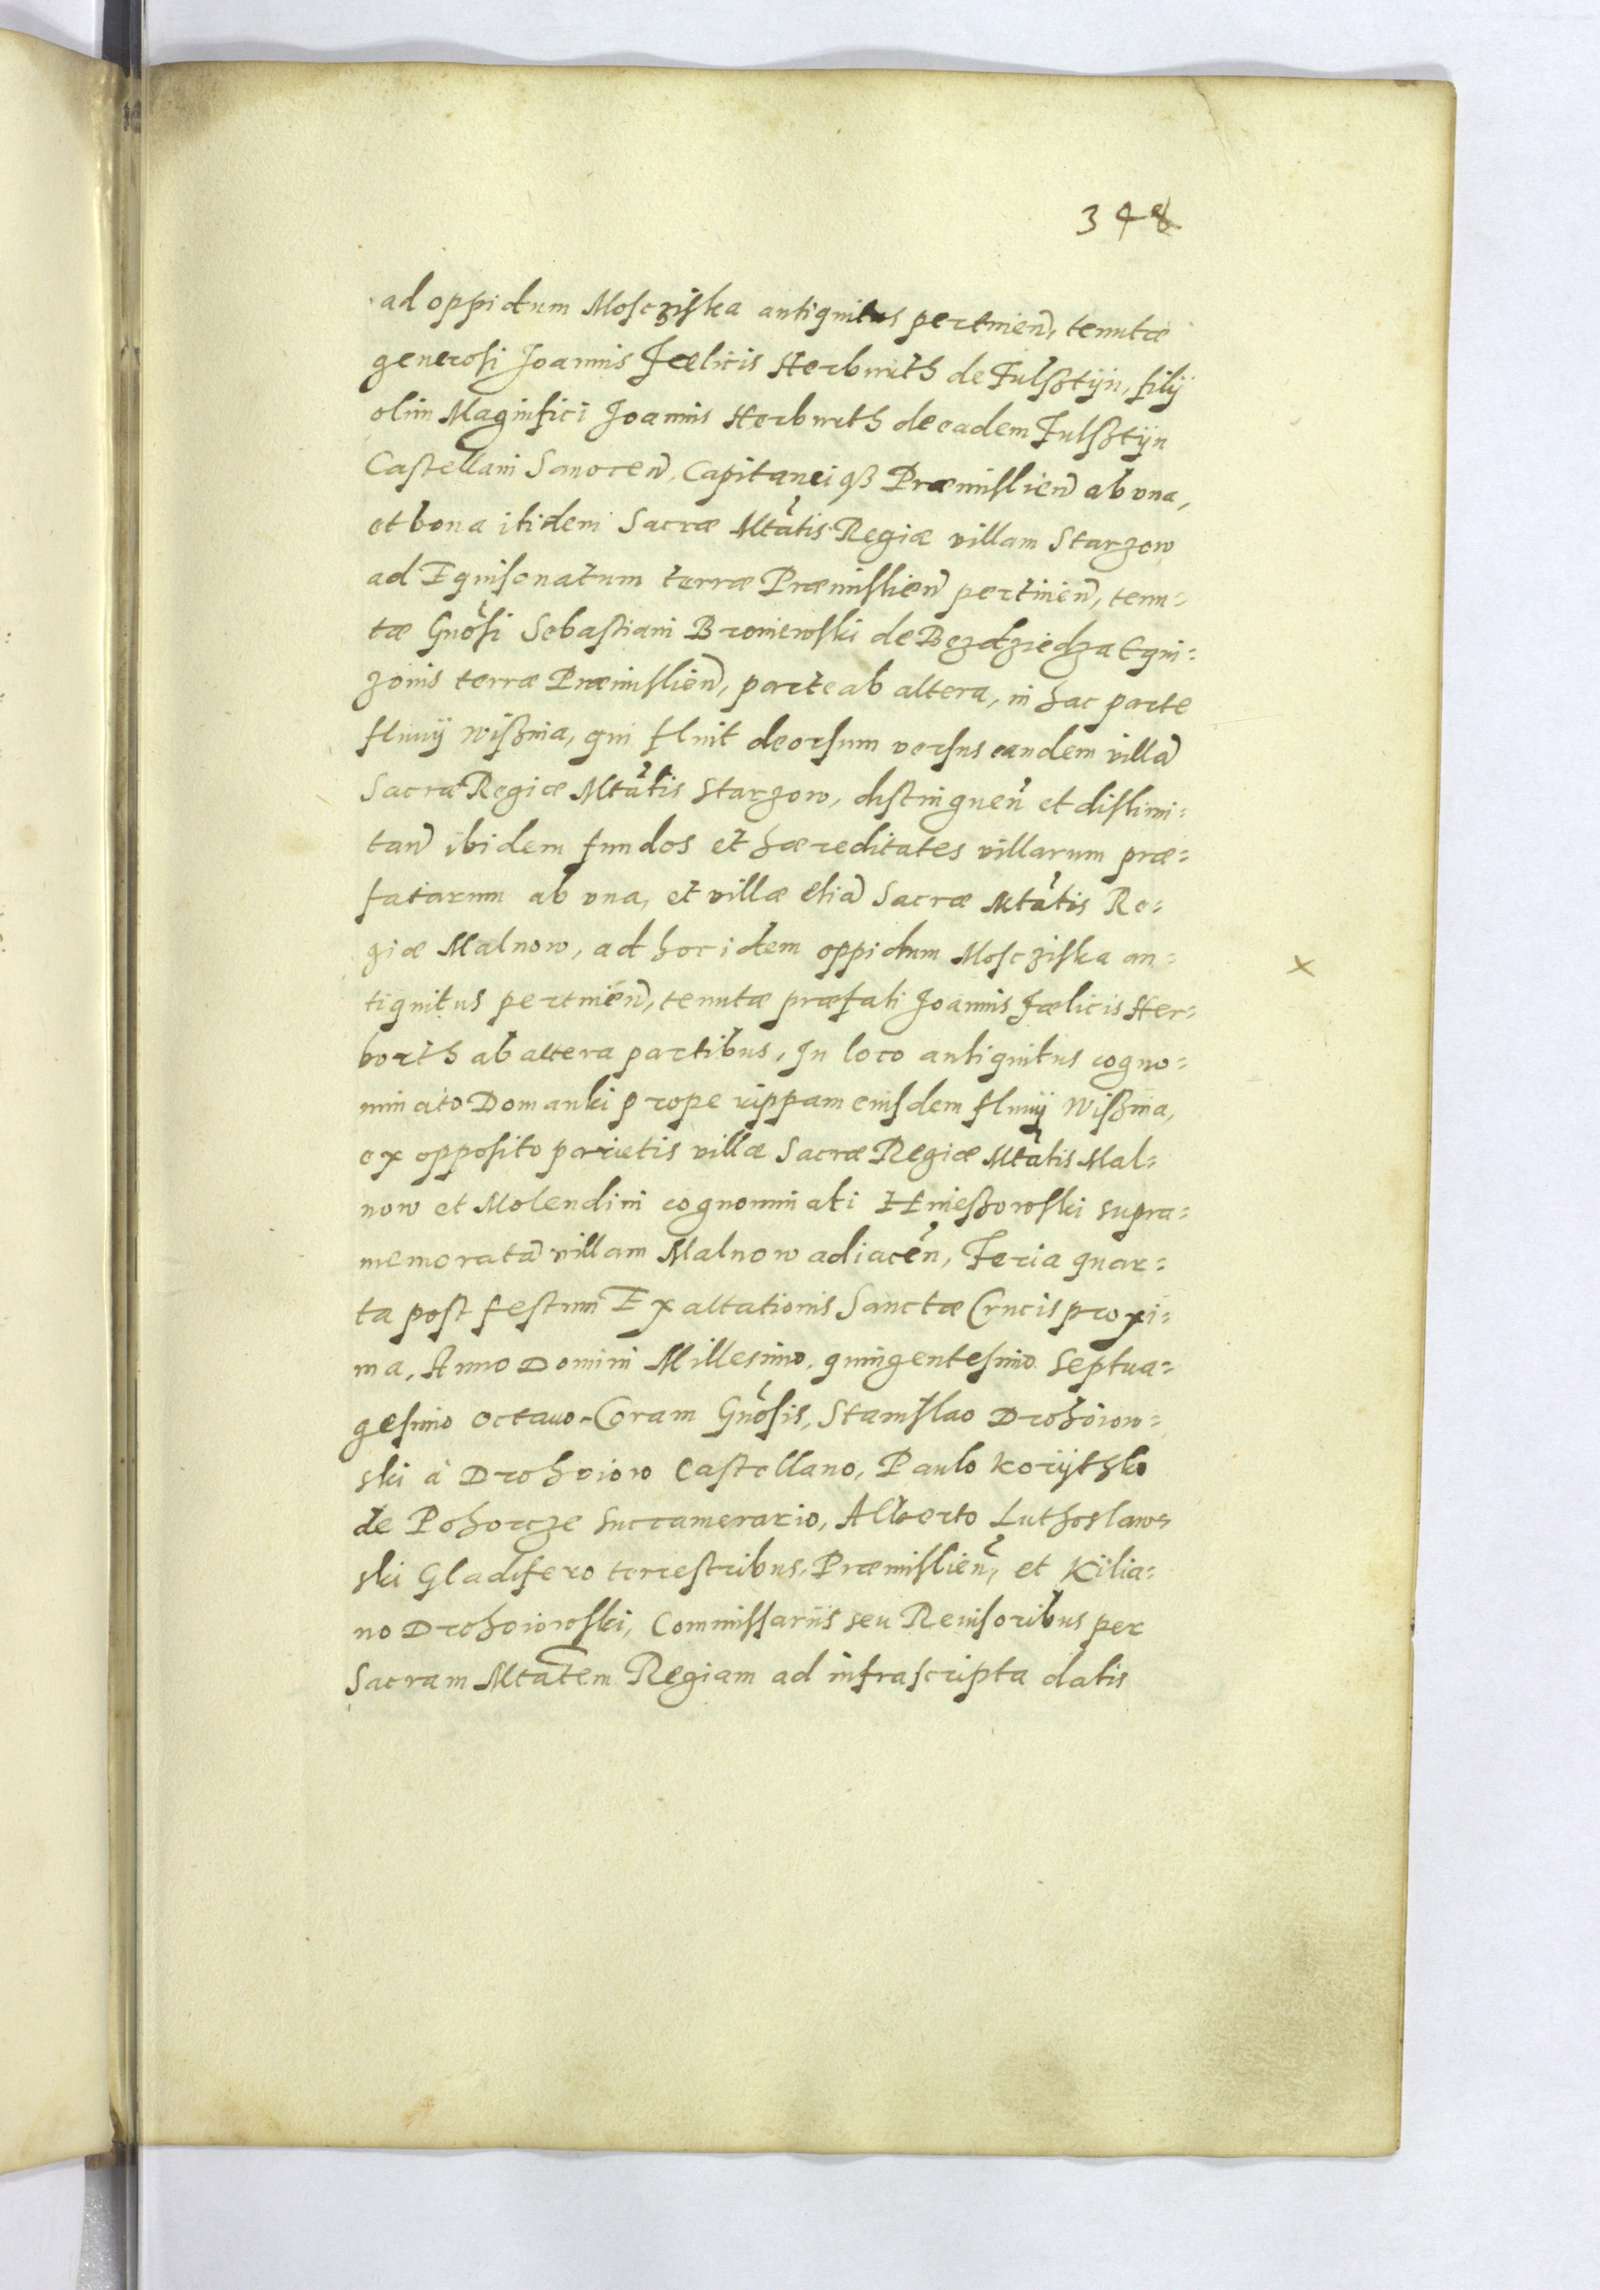 348
ad oppidum Mosczyska antiquitus pertinen̄, tenutæ
generosi Joannis Fœlicis Herburth de Fulsztijn, filij
olim Magnifici Joannis Herburth de eadem Fulsztijn
Castellani Sanocen̄, Capitaneiqȝ Præmislien̄ ab vna,
et bona itidem Sacræ Mtatis Regiæ villam Starzow
ad Equisonatum terræ Præmislien̄ pertinen̄, tenu=
tæ Gnosi Sebastiani Broniewski de Bezdziedza Equi=
zonis terræ Præmislien̄, parte ab altera, in hac parte
fluuij Wisznia, qui fluit deorsum versus eandem villā
Sacræ Regiæ Mtatis Starzow, distinguen̄ et dislimi=
tan̄ ibidem fundos et hæreditates villarum præ=
fatarum ab vna, et villæ etiā Sacræ Mtatis Re=
giæ Malnow, ad hoc idem oppidum Moscziska an=
tiquitus pertinen̄, tenutæ præfati Joannis Fælicis Her=
borth ab altera partibus, In loco antiquitus cogno=
minato Domanki prope rippam eiusdem fluuij Wisznia,
ex opposito parietis villæ Sacræ Regiæ Mtatis Mal=
now et Molendini cognominati Hnieszowski supra=
memoratā villam Malnow adiacen̄, Feria quar=
ta post festum Exaltationis Sanctæ Crucis proxi=
ma, Anno Domini Millesimo, quingentesimo septua=
gesimo octauo. Coram Gnosis, Stanislao Drohoiow=
ski à Drohoiow Castellano, Paulo Korijthko
de Pohorcze Succamerario, Alberto Luthoslaws
ski Gladifero terrestribus, Præmislien̄, et Kilia=
no Drohoiowski, Commissarijs seu Reuisoribus per
Sacram Mtatem Regiam ad infrascripta datis